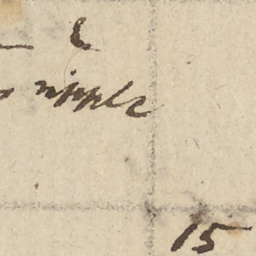 nipple
15